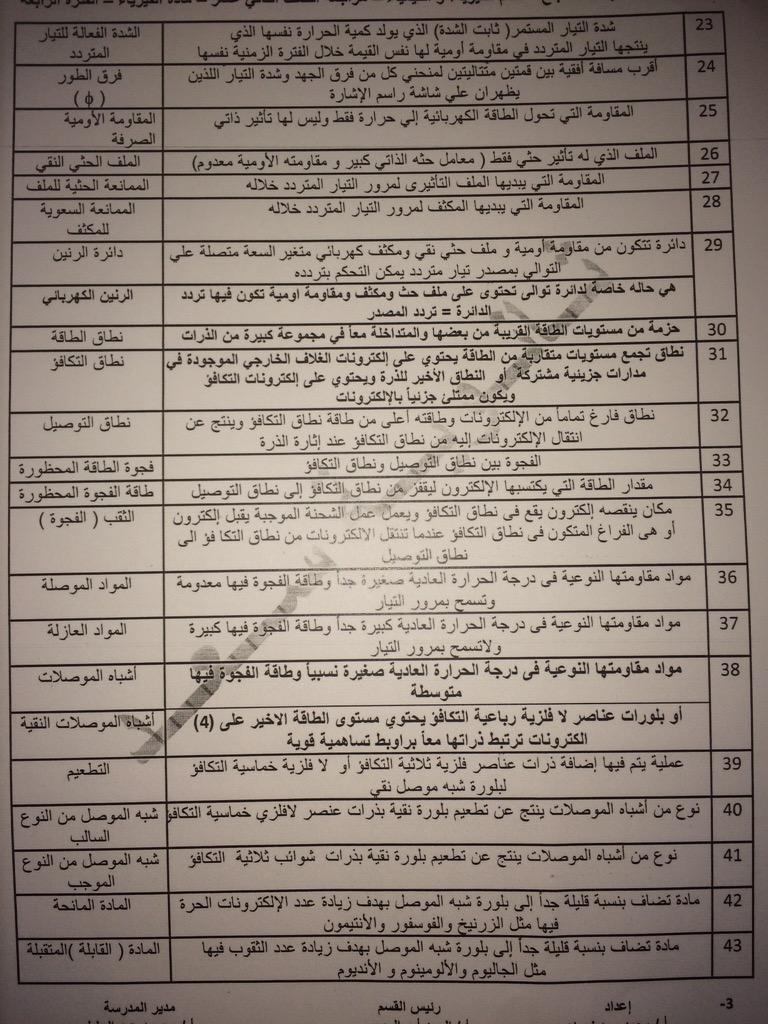 23 شدة التيار المستمر( ثابت الشدة) الذي يولد كمية الحرارة نفسها الذي الشدة الفعالة للتيار
ينتجها التيار المتردد في مقاومة أومية لها نفس القيمة خلال الفترة الزمنية نفسها المتردد
24 أقرب مسافة أفقية بين قمتين متتاليتين لمنحني كل من فرق الجهد وشدة التيار اللذين فرق الطور
يظهران علي شاشة راسم الإشارة ( ϕ )
25 المقاومة التي تحول الطاقة الكهربائية إلي حرارة فقط وليس لها تأثير ذاتي المقاومة الأومية
الصرفة
26 الملف الذي له تأثير حثي فقط ( معامل حثه الذاتي كبير و مقاومته الأومية معدوم) الملف الحثي النقي
27 المقاومة التي يبديها الملف التأثيرى لمرور التيار المتردد خلاله الممانعة الحثية للملف
28 المقاومة التي يبديها المكثف لمرور التيار المتردد خلاله الممانعة السعوية
للمكثف
29 دائرة تتكون من مقاومة أومية و ملف حثي نقي ومكثف كهربائي متغير السعة متصلة علي دائرة الرنين
التوالي بمصدر تيار متردد يمكن التحكم بتردده
هي حاله خاصة لدائرة توالى تحتوى على ملف حث ومكثف ومقاومة اومية تكون فيها تردد الرنين الكهربائي
الدائرة = تردد المصدر
30 حزمة من مستويات الطاقة القريبة من بعضها والمتداخلة معاً في مجموعة كبيرة من الذرات نطاق الطاقة
31 نطاق تجمع مستويات متقاربة من الطاقة يحتوي على إلكترونات الغلاف الخارجي الموجودة في نطاق التكافؤ
مدارات جزيئية مشتركة أو النطاق الأخير للذرة ويحتوي على إلكترونات التكافؤ
ويكون ممتلئ جزئياً بالإلكترونات
32 نطاق فارغ تماماً من الإلكترونات وطاقته أعلى من طاقة نطاق التكافؤ وينتج عن نطاق التوصيل
انتقال الإلكترونات إليه من نطاق التكافؤ عند إثارة الذرة
33 الفجوة بين نطاق التوصيل ونطاق التكافؤ فجوة الطاقة المحظورة
34 مقدار الطاقة التي يكتسبها الإلكترون ليقفز من نطاق التكافؤ إلى نطاق التوصيل طاقة الفجوة المحظورة
35 مكان ينقصه إلكترون يقع فى نطاق التكافؤ ويعمل عمل الشحنة الموجبة يقبل إلكترون الثقب ( الفجوة )
أو هى الفراغ المتكون فى نطاق التكافؤ عندما تنتقل الالكترونات من نطاق التكا فؤ الى
نطاق التوصيل
36 مواد مقاومتها النوعية فى درجة الحرارة العادية صغيرة جداً وطاقة الفجوة فيها معدومة المواد الموصلة
وتسمح بمرور التيار
37 مواد مقاومتها النوعية فى درجة الحرارة العادية كبيرة جداً وطاقة الفجوة فيها كبيرة المواد العازلة
ولاتسمح بمرور التيار
38 مواد مقاومتها النوعية فى درجة الحرارة العادية صغيرة نسبياً وطاقة الفجوة فيها أشباه الموصلات
متوسطة
أو بلورات عناصر لا فلزية رباعية التكافؤ يحتوي مستوى الطاقة الاخير على (4) أشباه الموصلات النقية
الكترونات ترتبط ذراتها معاً براوبط تساهمية قوية
39 عملية يتم فيها إضافة ذرات عناصر فلزية ثلاثية التكافؤ أو لا فلزية خماسية التكافؤ التطعيم
لبلورة شبه موصل نقي
40 نوع من أشباه الموصلات ينتج عن تطعيم بلورة نقية بذرات عنصر لافلزي خماسية التكافؤ شبه الموصل من النوع
السالب
41 نوع من أشباه الموصلات ينتج عن تطعيم بلورة نقية بذرات شوائب ثلاثية التكافؤ شبه الموصل من النوع
الموجب
42 مادة تضاف بنسبة قليلة جداً إلى بلورة شبه الموصل بهدف زيادة عدد الإلكترونات الحرة المادة المانحة
فيها مثل الزرنيخ والفوسفور والأنتيمون
43 مادة تضاف بنسبة قليلة جداً إلى بلورة شبه الموصل بهدف زيادة عدد الثقوب فيها المادة ( القابلة )المتقبلة
مثل الجاليوم والألومينوم و الأنديوم
3- إعداد رئيس القسم مدير المدرسة